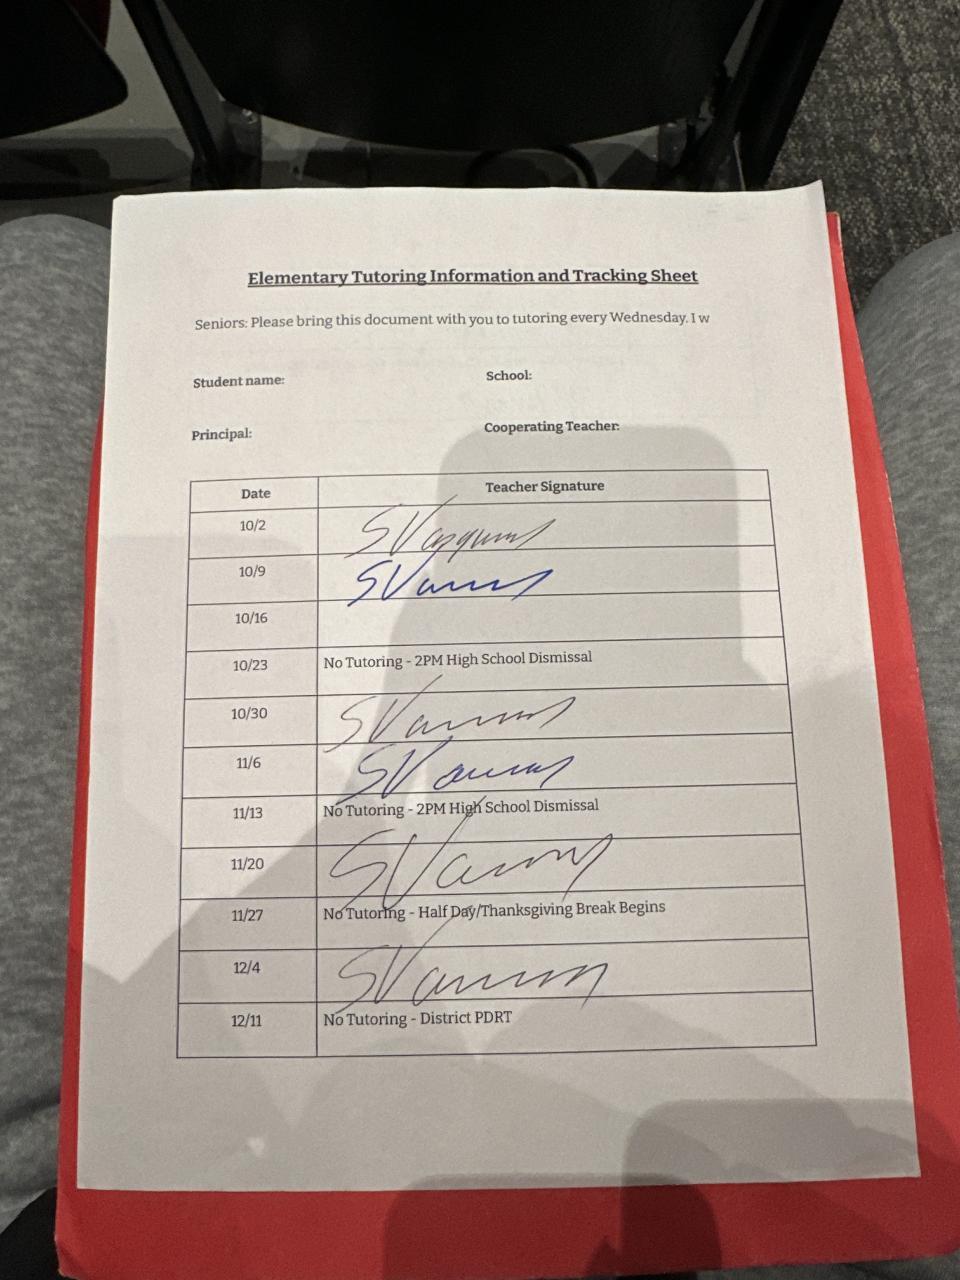 Elementary Tutoring Information and Tracking Sheet
Seniors: Please bring this document with you to tutoring every Wednesday. I w
Student name: School:
Principal: Cooperating Teacher:
Date Teacher Signature
10/2
10/9
10/16
10/23 No Tutoring - 2PM High School Dismissal
10/30
11/6
11/13 No Tutoring - 2PM High School Dismissal
11/20
11/27 No Tutoring - Half Day/Thanksgiving Break Begins
12/4
12/11 No Tutoring - District PDRT